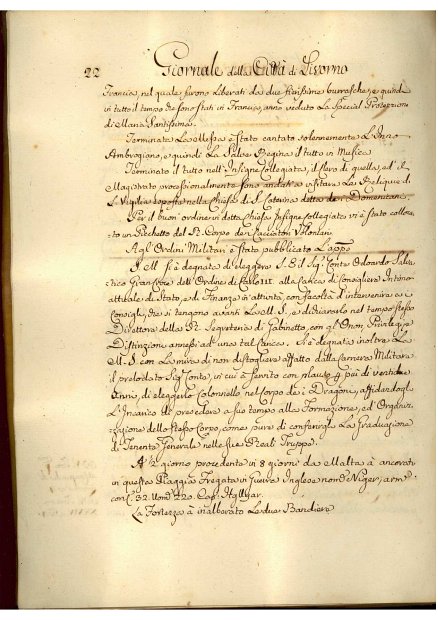 22 Giornale della Città di Livorno
Francia, nel quale furono Liberati da due fierissime burrasche, e quindi
in tutto il tempo che sono stati in Francia, anno veduto La Special Protezione
di Maria Santissima.
Terminata La Messa è stato cantato solennemente L'Inno
Ambrogiano, e quindi La Salve Regina il tutto in Musica
Terminato il tutto nell'Insigne Collegiata, il Clero di quella, ed il
Magistrato processionalmente sono andati a visitare La Reliquie di
S. Vigilia esposta nella Chiesa di S. Caterina detta dei Domenicani.
Per il buon ordine in detta Chiesa Insigne Collegiata vi è stato colloca-
to un Picchetto del R. Corpo dei Cacciatori Volontari.
Agl'Ordini Militari è stato pubblicato L'app.o
S. M. si è degnata di eleggere S. E. il Sig. Conte Odoardo
Gran Croce dell'Ordine di Carlo III. alla Carica di Consigliere Intimo
attuale di Stato, e di Finanze in attività, con facoltà d'intervenire ai
Consigli, che si tengono avanti La M. S., e dichiararlo nel tempo stesso
Direttore della R. Segreteria di Gabinetto, con gl'Onori, Privilegi, e
Distinzioni annessi ad una tal Carica. Si è degnata inoltre La
M. S. con La mira di non distogliere affatto dalla Carriera Militare
il prelodato Sig. Conte, in cui à servito con plauso per più di ventidue
Anni, di eleggerlo Colonnello nel Corpo dei Dragoni, affidandogli
L'Incarico di procedere a suo tempo alla Formazione, ed Organiz-
zazione dello stesso Corpo, come pure di conferirgli La Graduazione
di Tenente Generale nelle sue Reali Truppe.
A' 2 giorno procedente in 8 giorni da Malta à ancorato
in questa Spiaggia Fregata in Guerra Inglese nom.a Niger, arm.a
con C. 32. Uom.i 220. Cap.
La Fortezza à inalberato Le due Bandiere